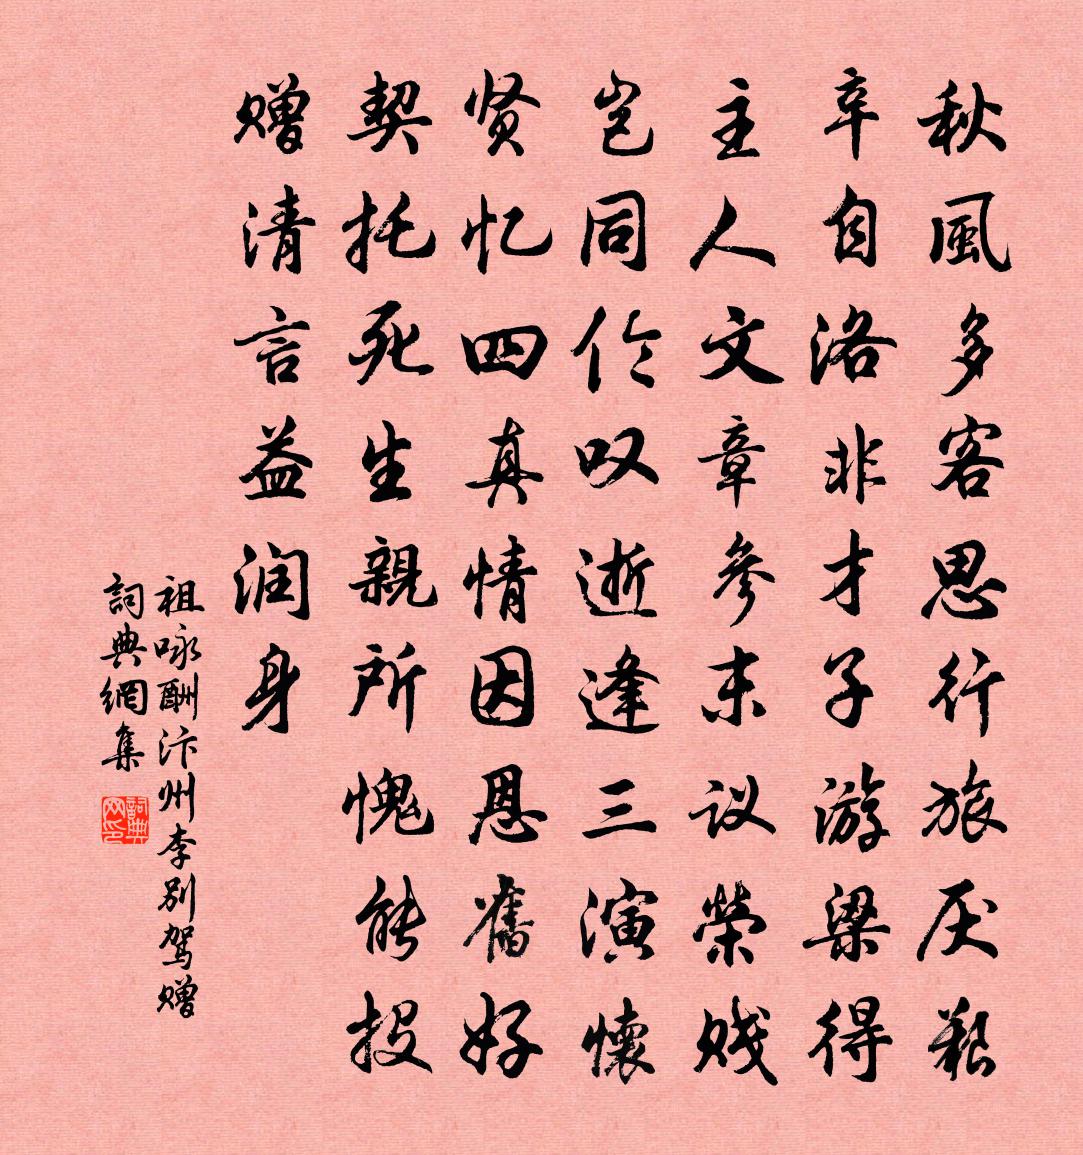 秋風多客思行旅厌艱
辛自洛非才子游梁得
主人文章参末议榮贱
岂同伦叹逝逢三演懷
贤忆四真情因恩舊好
契托死生親所愧能投
赠清言益润身
祖咏酬汴州李别驾赠
詞典網集
詞典网印